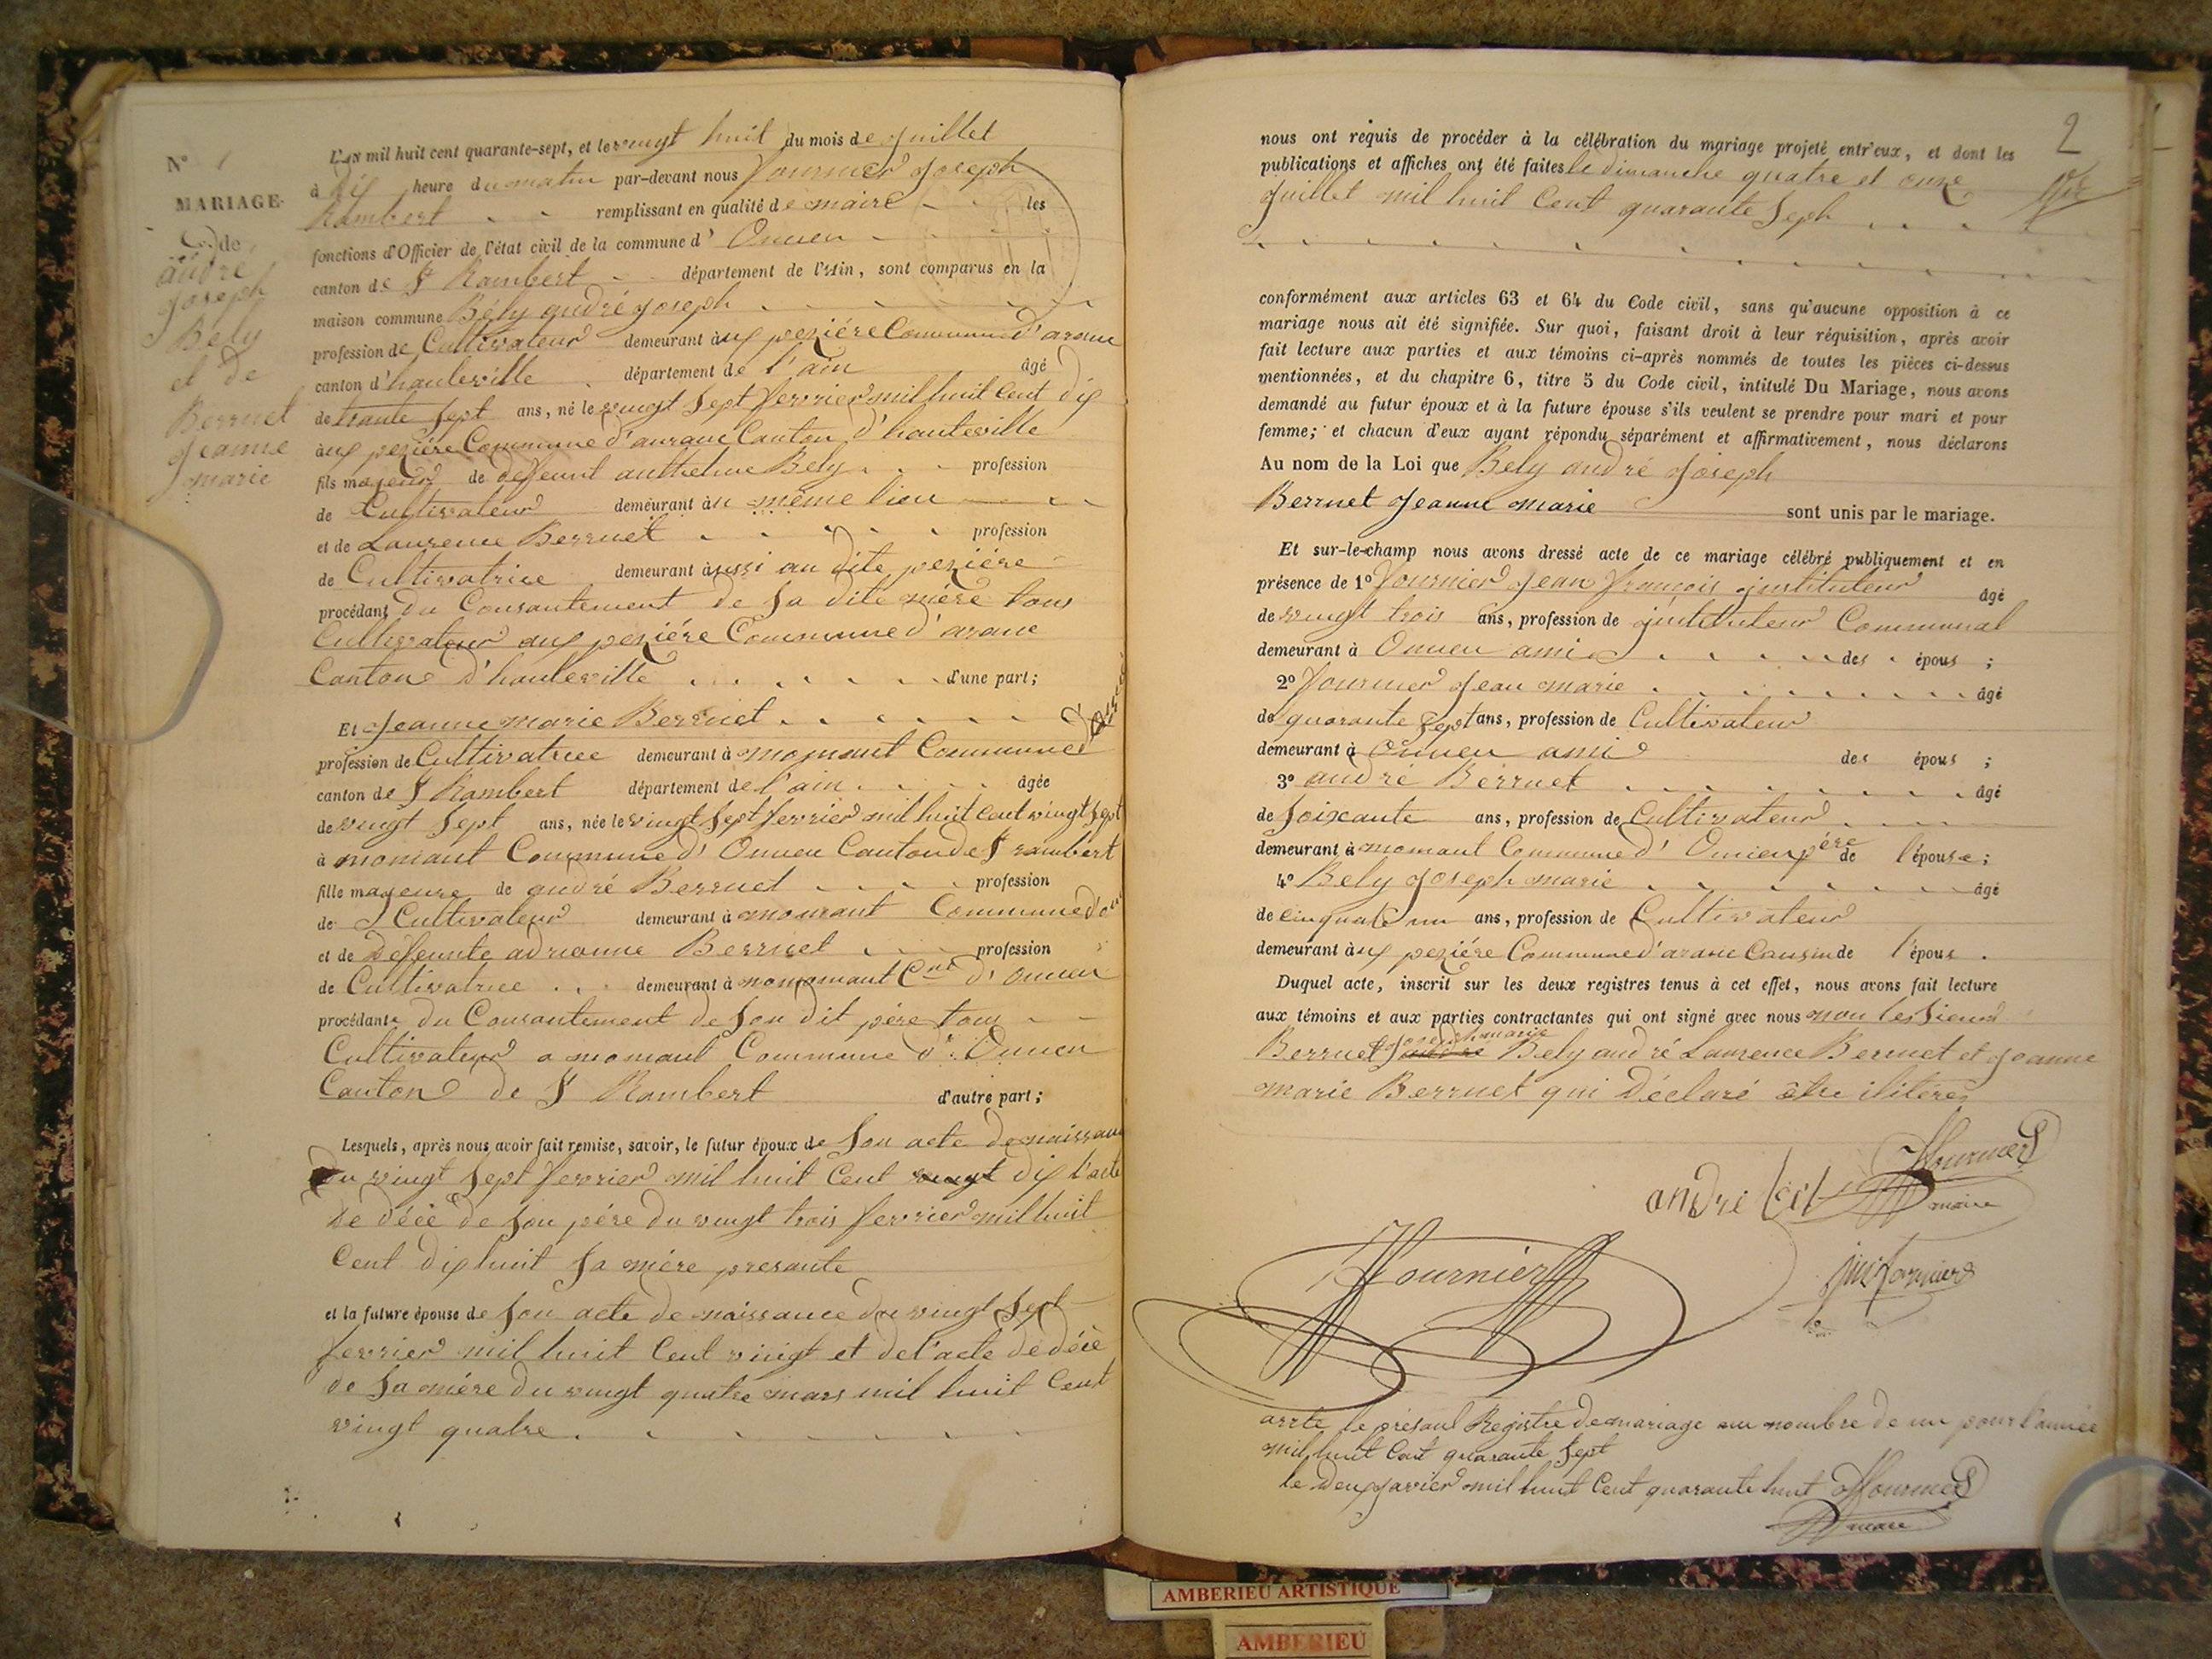 N° 1
MARIAGE
de
andre
joseph
Bely
et de
Berruet
jeanne
marie
L'AN mil huit cent quarante-sept, et le vingt huit du mois de juillet
à dix heure du matin par-devant nous fournier joseph
Rambert remplissant en qualité de maire les
fonctions d'Officier de l'état civil de la commune d' Oncieu
canton de St Rambert département de l'Ain, sont comparus en la
maison commune Bély andré joseph
profession de Cultivateur demeurant à ux pezière Commune d'arane
canton d'hauteville département de l'ain âgé
de trante sept ans, né le vingt sept fevrier mil huit cent dix
aux pezière Commune d'aurane Canton d'hauteville
fils majeur de defeunt anthelme Bely profession
de Cultivateur demeurant àu même lieu
et de Laurence Berruet profession
de Cultivatrice demeurant àussi au dite pezière
procédant du Consantement de sa dite mère tous
Cultivateur aux pezière Commune d'arane
Canton d'hauteville d'une part;
Et jeanne marie Berruet
profession de Cultivatrice demeurant à momant Commune d'
canton de St Rambert département de l'ain âgée
de vingt sept ans, née le vingt sept fevrier mil huit cent vingt sept
à momant Commune d' Oncieu Canton de St rambert
fille mageure de andré Berruet profession
de Cultivateur demeurant à mourant Commune d'on
et de defeunte adrianne Berruet profession
de Cultivatrice demeurant à momomant Cne d' oncieu
procédante du Consantement de son dit père tous
Cultivateur a momant Commune d' Oncieu
Canton de St Rambert d'autre part;
Lesquels, après nous avoir fait remise, savoir, le futur époux de son acte de naissance
du vingt sept fevrier mil huit Cent vingt dix l'acte
de décè de son père du vingt trois fevrier mil huit
Cent dixhuit sa mère presante
et la future épouse de son acte de naissance du vingt sept
fevrier mil huit Cent vingt et de l'acte de décè
de sa mère du vingt quatre mars mil huit Cent
vingt quatre
2
nous ont requis de procéder à la célébration du mariage projeté entr'eux, et dont les
publications et affiches ont été faites le dimanche quatre et onze
juillet mil huit Cent quarante seph
conformément aux articles 63 et 64 du Code civil, sans qu'aucune opposition à ce
mariage nous ait été signifiée. Sur quoi, faisant droit à leur réquisition, après avoir
fait lecture aux parties et aux témoins ci-après nommés de toutes les pièces ci-dessus
mentionnées, et du chapitre 6, titre 5 du Code civil, intitulé Du Mariage, nous avons
demandé au futur époux et à la future épouse s'ils veulent se prendre pour mari et pour
femme; et chacun d'eux ayant répondu séparément et affirmativement, nous déclarons
Au nom de la Loi que Bely andré joseph
Berruet jeanne marie sont unis par le mariage.
Et sur-le-champ nous avons dressé acte de ce mariage célébré publiquement et en
présence de 1° fournier jean françois jnstituteur âgé
de vingt trois ans, profession de jnstituteur Communal
demeurant à Oncieu ami des épous ;
2° fournier jean marie âgé
de quarante sept ans, profession de Cultivateur
demeurant à Oncieu ami des épous ;
3° andré Berruet âgé
de soixante ans, profession de Cultivateur
demeurant à momant Commune d' Oncieu père de l'épouse ;
4° Bely joseph marie âgé
de cinquate un ans, profession de Cultivateur
demeurant àux pezière Commune d'arane Cousin de l'épous .
Duquel acte, inscrit sur les deux registres tenus à cet effet, nous avons fait lecture
aux témoins et aux parties contractantes qui ont signé avec nous non les sieurs
joseph marie
Berruet andre Bely andré Laurence Berruet et jeanne
marie Berruet qui déclaré être iliteres
fournier
andre maire
Fournier
fournier
arrte le présant Registre de mariage au nombre de un pour l'année
mil huit Cent quarante sept
le deux javier mil huit Cent quarante huit fournier
maire
AMBERIEU ARTISTIQUE
AMBERIEU